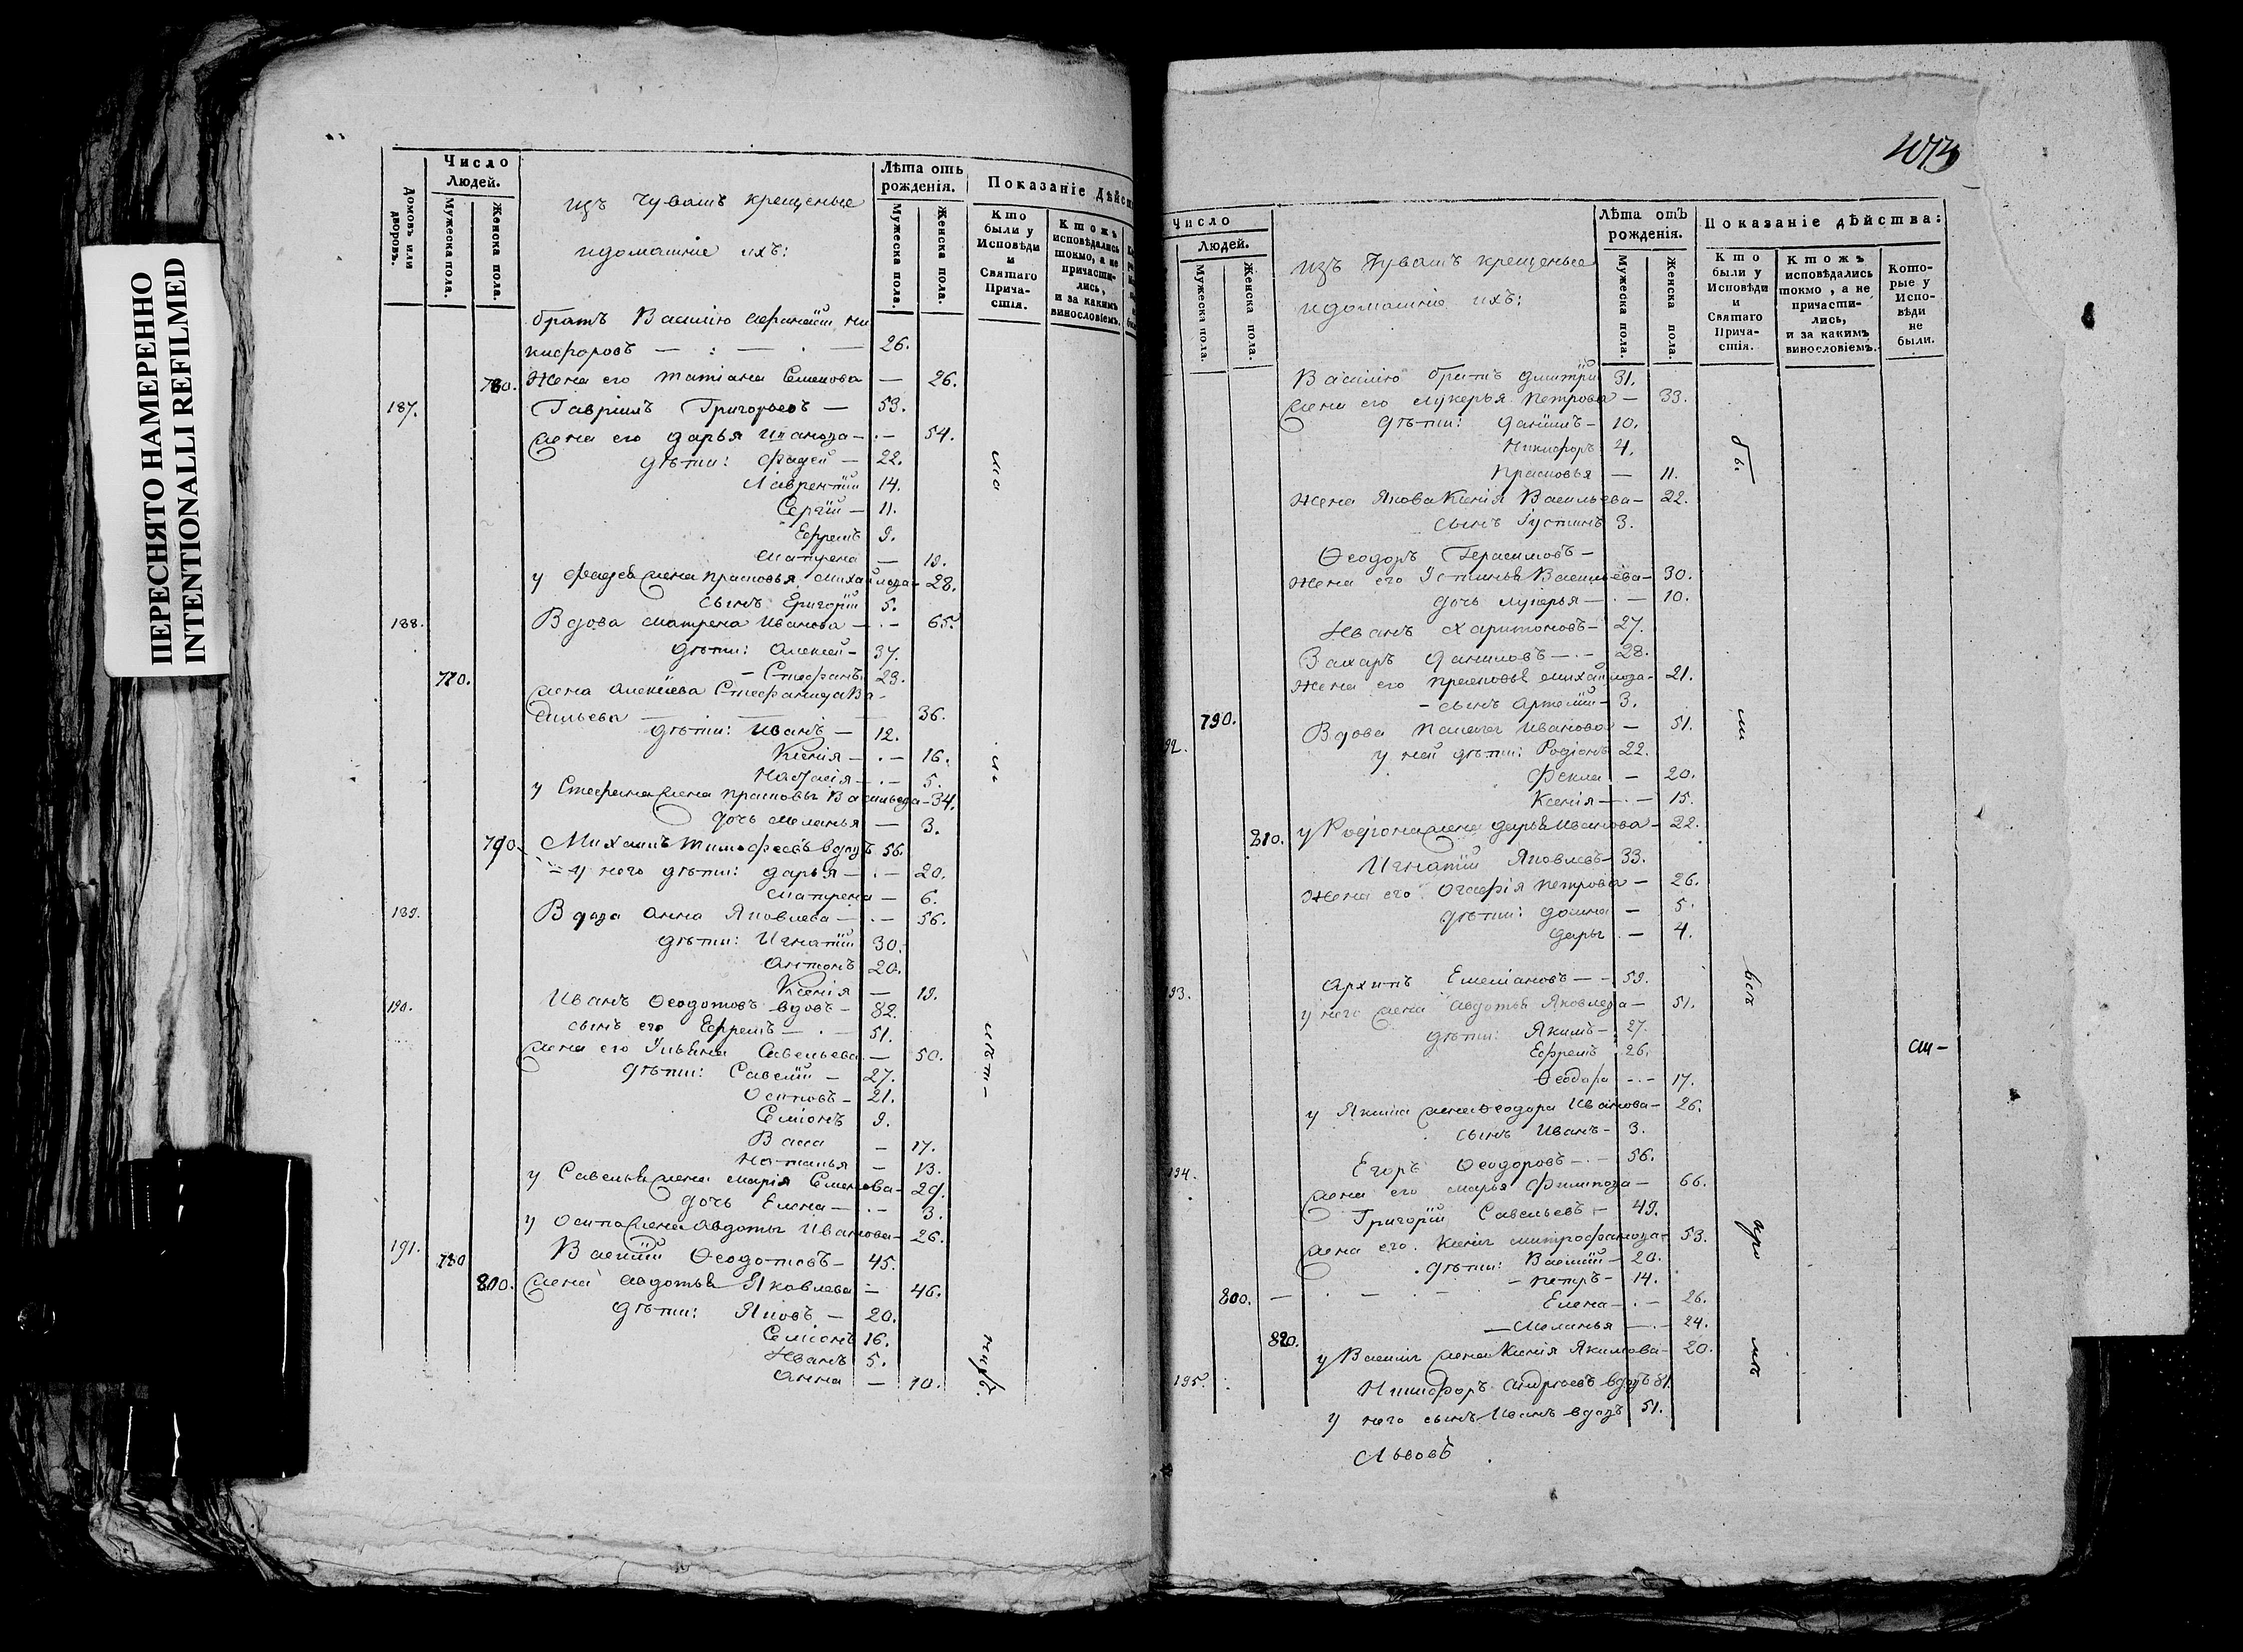 ПЕРЕСНЯТО НАМЕРЕННО
INTENTIONALLI REFILMED
Домовъ или дворовъ.
Число Людей.
Мужеска пола.
Женска пола.
изъ Чувашъ крещеные
идомашніе ихъ:
Лѣта отъ рожденія.
Мужеска пола.
Женска пола.
Показаніе дѣйст
Кто были у Исповѣди и Святаго Прича-стія.
Ктожъ исповѣдались токмо, а не причасти-лись, и за какимъ винословіемъ.
братъ Василію ни
кифоровъ — 26.
Жена его татіана Семенова — 26.
187. Гавріилъ Григорьевъ — 53.
жена его дарья — 54.
дѣти: Фадей — 22.
Лаврентій 14.
Сергій — 11.
Ефремъ 9.
матрена — 19.
у Фадея жена прасковья михайлова — 28.
сынъ Григорій 5.
188. Вдова матрена Иванова — 65.
дѣти: алексей — 37.
770. — Стефанъ 23.
жена алексѣева Стефанида Ва-
сильева — 36.
дѣти: Иванъ — 12.
Ксенія — 16.
Настасія — 5.
у Стефана жена прасковья Васильева — 34.
дочь меланья — 3.
790. Михаилъ тимофеевъ вдовъ 56.
у него дѣти: дарья — 20.
матрена — 6.
189. Вдова анна Яковлева — 56.
дѣти: Игнатій 30.
антонъ 20.
Ксенія — 19.
190. Иванъ Ѳеодотовъ вдовъ — 82.
сынъ его Ефремъ — 51.
жена его Савельева — 50.
дѣти: Савелій — 27.
Осиповъ — 21.
Семіонъ 9.
Васса — 17.
Наталья — 13.
у Савелья жена марія Семенова — 29.
дочь Елена — 3.
у осипа жена авдотья Иванова — 26.
191. 780 Василій Ѳеодотовъ — 45.
800. жена авдотья Яковлева — 46.
дѣти: Яковъ — 20.
Семіонъ 16.
Иванъ 5.
анна — 10.
Число Людей.
Мужеска пола.
Женска пола.
изъ Чувашъ крещеные
идомашніе ихъ:
Лѣта отъ рожденія.
Мужеска пола.
Женска пола.
Показаніе дѣйства:
Кто были у Исповѣди и Святаго Прича-стія.
Ктожъ исповѣдались токмо, а не причасти-лись, и за какимъ винословіемъ.
Кото-рые у Испо-вѣди не были.
Василію братъ дмитрій 31.
жена его лукерья петрова — 33.
дѣти: даніилъ — 10.
Никифоръ 4.
прасковья — 11.
жена Якова Ксенія Васильева — 22.
сынъ Іустинъ 3.
Ѳеодоръ Герасимовъ —
жена его Устинья Васильева — 30.
дочь лукерья — 10.
Иванъ Харитоновъ — 27.
Захаръ даниловъ — 28.
жена его прасковья михайлова — 21.
— сынъ артемій — 3.
790.
92. Вдова Иванова — 51.
у ней дѣти: Родіонъ 22.
Фекла — 20.
Ксенія — 15.
810. у Родіона жена дарья Иванова — 22.
Игнатій Яковлевъ — 33.
жена его Огафія петрова — 26.
дѣти: домна — 5.
дарья — 4.
193. архипъ Емеліановъ — 59.
у него жена авдотья Яковлева — 51.
дѣти: Якимъ — 27.
Ефремъ 26.
Ѳеодора — 17.
у Якима жена Ѳеодора Иванова — 26.
сынъ Иванъ — 3.
194. Егоръ Ѳеодоровъ — 56.
жена его марья филипова — 66.
Григорій Савельевъ — 49.
жена его Ксенія митрофанова — 53.
дѣти: Василій — 20.
— петръ — 14.
800. Елена — 26.
— меланья — 24.
820. у Василья жена Ксенія Якимова — 20.
195. Никифоръ андреевъ вдовъ 81.
у него сынъ Иванъ вдовъ 51.
Львовъ